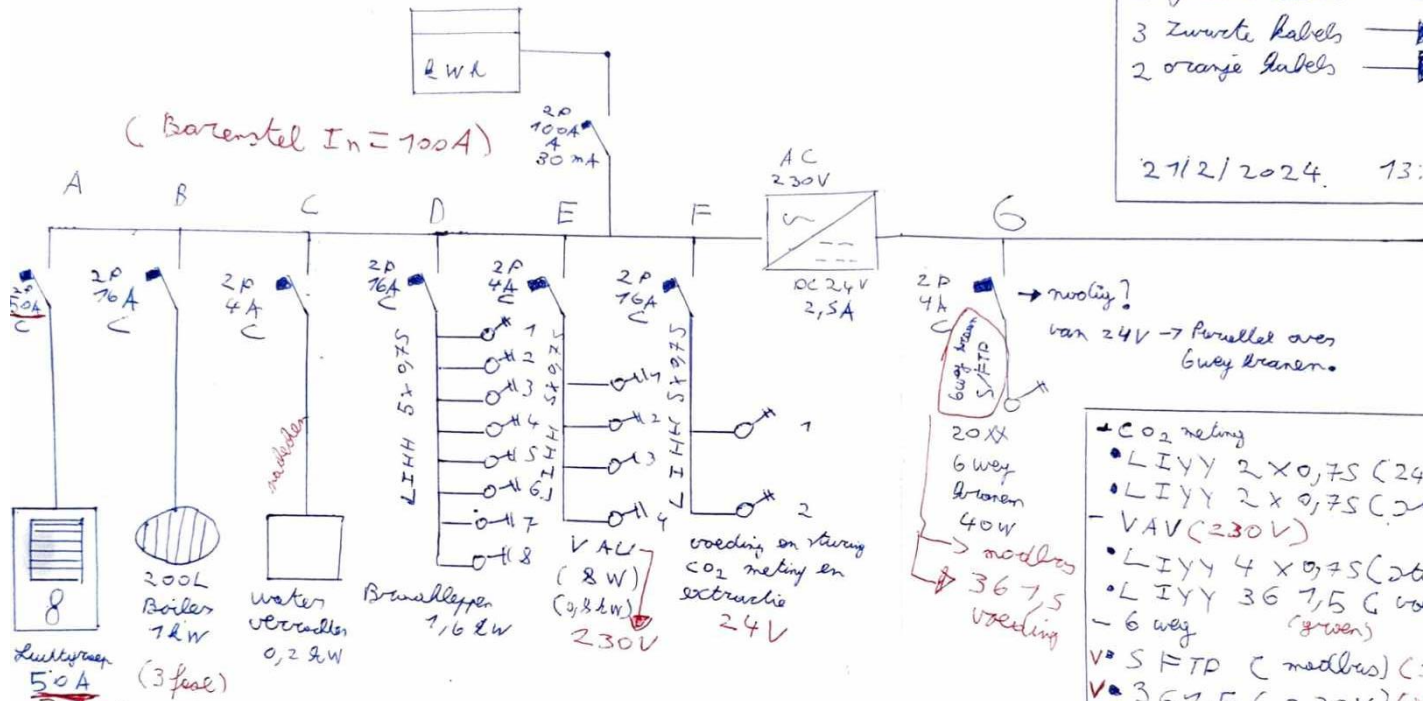 3 zwarte kabels
2 oranje kabels
21/2/2024. 13:
kWh
(Barenstel In = 100A)
2P
100A
A
30 mA
AC
230V
DC 24V
2,5A
A B C D E F G
2P
50A
C
2P
16A
C
2P
4A
C
2P
16A
C
2P
4A
C
2P
16A
C
2P
4A
C
→ nodig?
van 24V → Parallel over
6weg kranen.
LIHH 5x0,75
LIHH 5x0,75
LIHH 5x0,75
6weg kranen
S/FTP
1
2
3
4
5
6
7
8
1
2
3
4
1
2
200L
Boiler
1kW
(3 fase)
Luchtgroep
50A
water
verzachter
0,2 kW
Brandkleppen
1,6 kW
VAV
(8W)
(0,8kW)
230V
voeding en sturing
CO2 meting en
extractie
24V
20X
6 weg
kranen
40W
modbus
3G 1,5
voeding
CO2 meting
LIYY 2x0,75 (24
LIYY 2x0,75 (
- VAV (230V)
LIYY 4x0,75 (
LIYY 3G 1,5 (
- 6 weg (groen)
V S FTP (modbus) (
V 3G1,5 (230V)